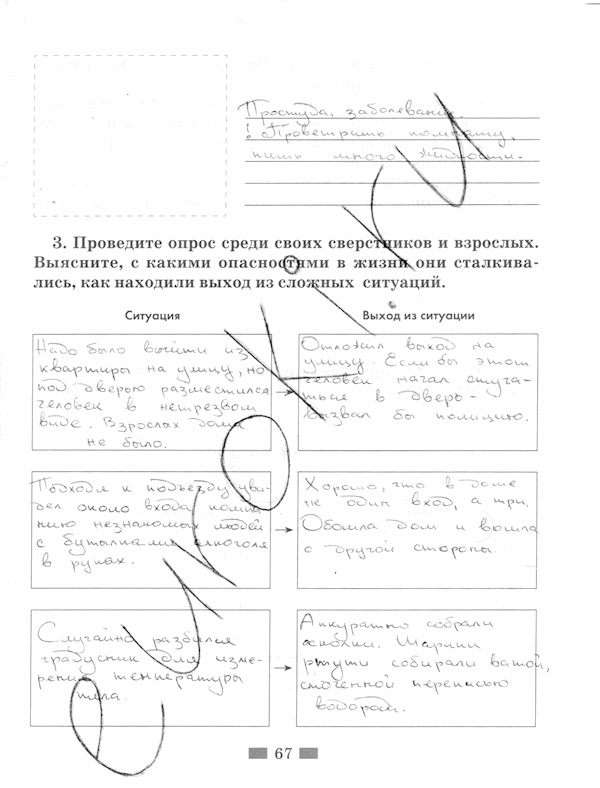 Простуда, заболевание.
! Проветрить комнату,
пить много жидкости.
3. Проведите опрос среди своих сверстников и взрослых.
Выясните, с какими опасностями в жизни они сталкива-
лись, как находили выход из сложных ситуаций.
Ситуация
Надо было выйти из
квартиры на улицу, но
под дверью разместился
человек в нетрезвом
виде. Взрослых дома
не было.
Выход из ситуации
Отложил выход на
улицу. Если бы этот
человек начал стуча-
ться в дверь -
вызвал бы полицию.
Подходя к подъезду уви-
дел около входа компа
нию незнакомых людей
с бутылками алкоголя
в руках.
Хорошо, что в доме
не один вход, а три.
Обошла дом и вошла
с другой стороны.
Случайно разбился
градусник для изме-
рения температуры
тела.
Аккуратно собрали
осколки. Шарики
ртути собирали ватой,
смоченной перекисью
водорода.
67